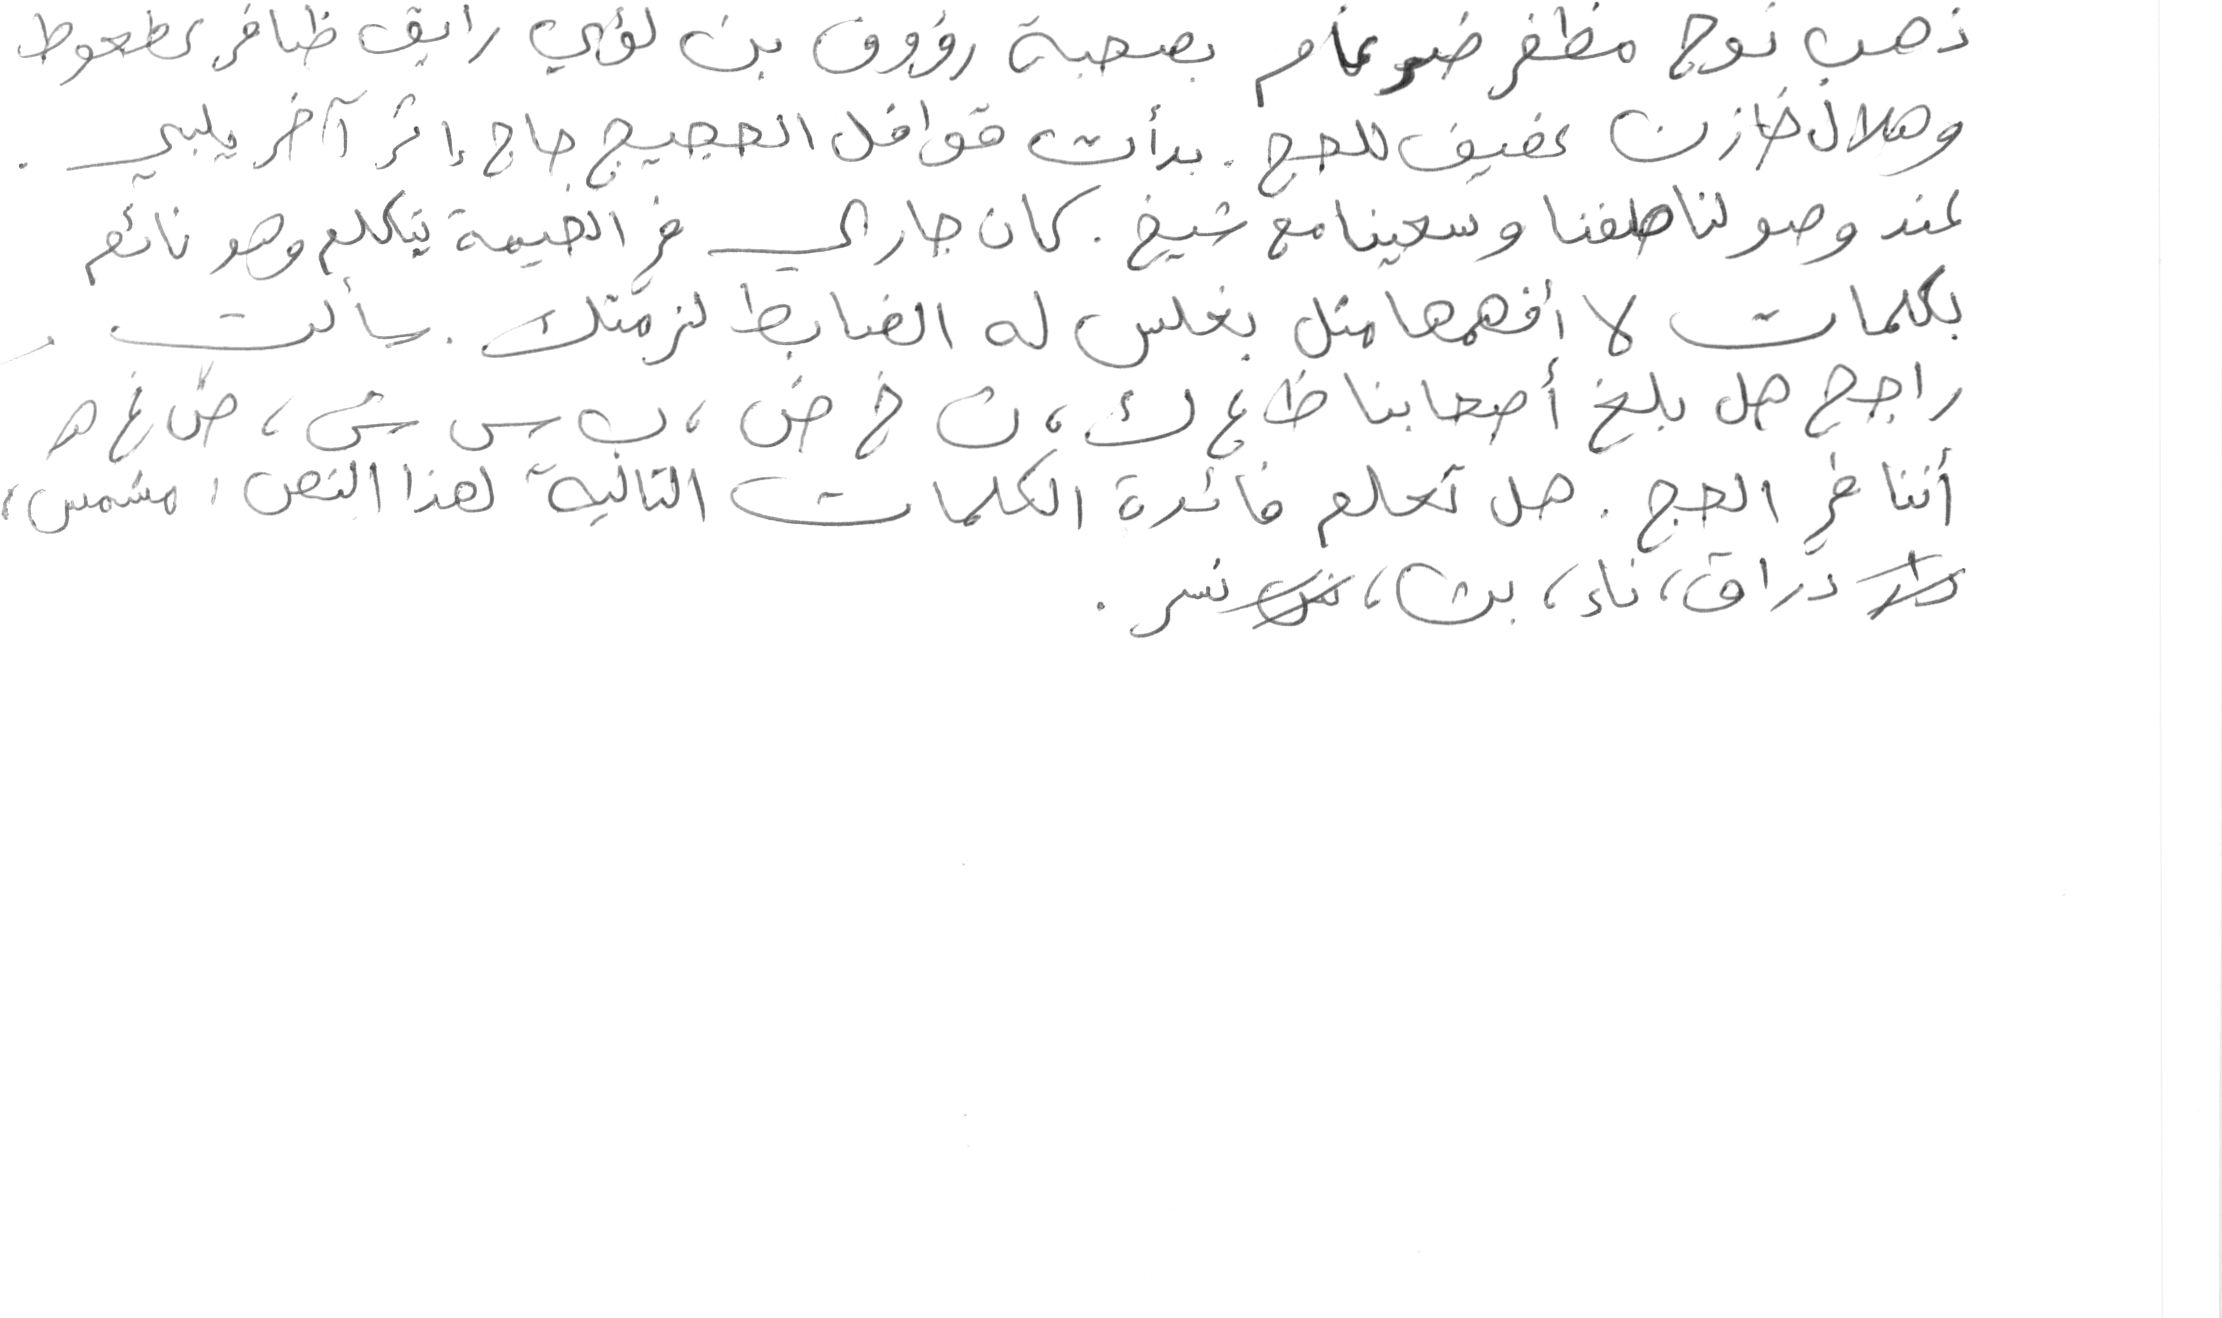 ذهب نوح مظفر ضرغام بصحبة رؤوف بن لؤي رايق ظافر عطعوط
وهلال خازن عفيف للحج. بدأت قوافل الحجيج حاج إثر آخر يلبي.
عند وصولنا طفنا وسعينا مع شيخ. كان جار لي في الخيمة يتكلم وهو نائم
بكلمات لا أفهمها مثل بغلس له الضابط لزمتك. سألت
راجح هل بلغ أصحابنا ظ ع ك، ث خ ض، ب س ش، ص غ ه
أننا في الحج. هل تعلم فائدة الكلمات التالية لهذا النص: مشمس،
دراق، ناء، بث، نسر.